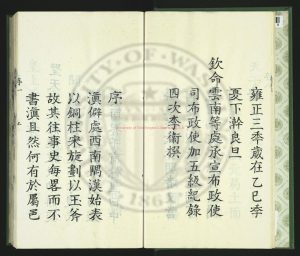 雍正三年歲在乙巳季
夏下浣良旦
欽命雲南等處承宣布政使
司布政使加五級紀錄
四次李衛撰
序
滇僻處西南隅漢始表
以銅柱宋旋劃以玉斧
故其往事史每畧而不
書滇且然何有於屬邑